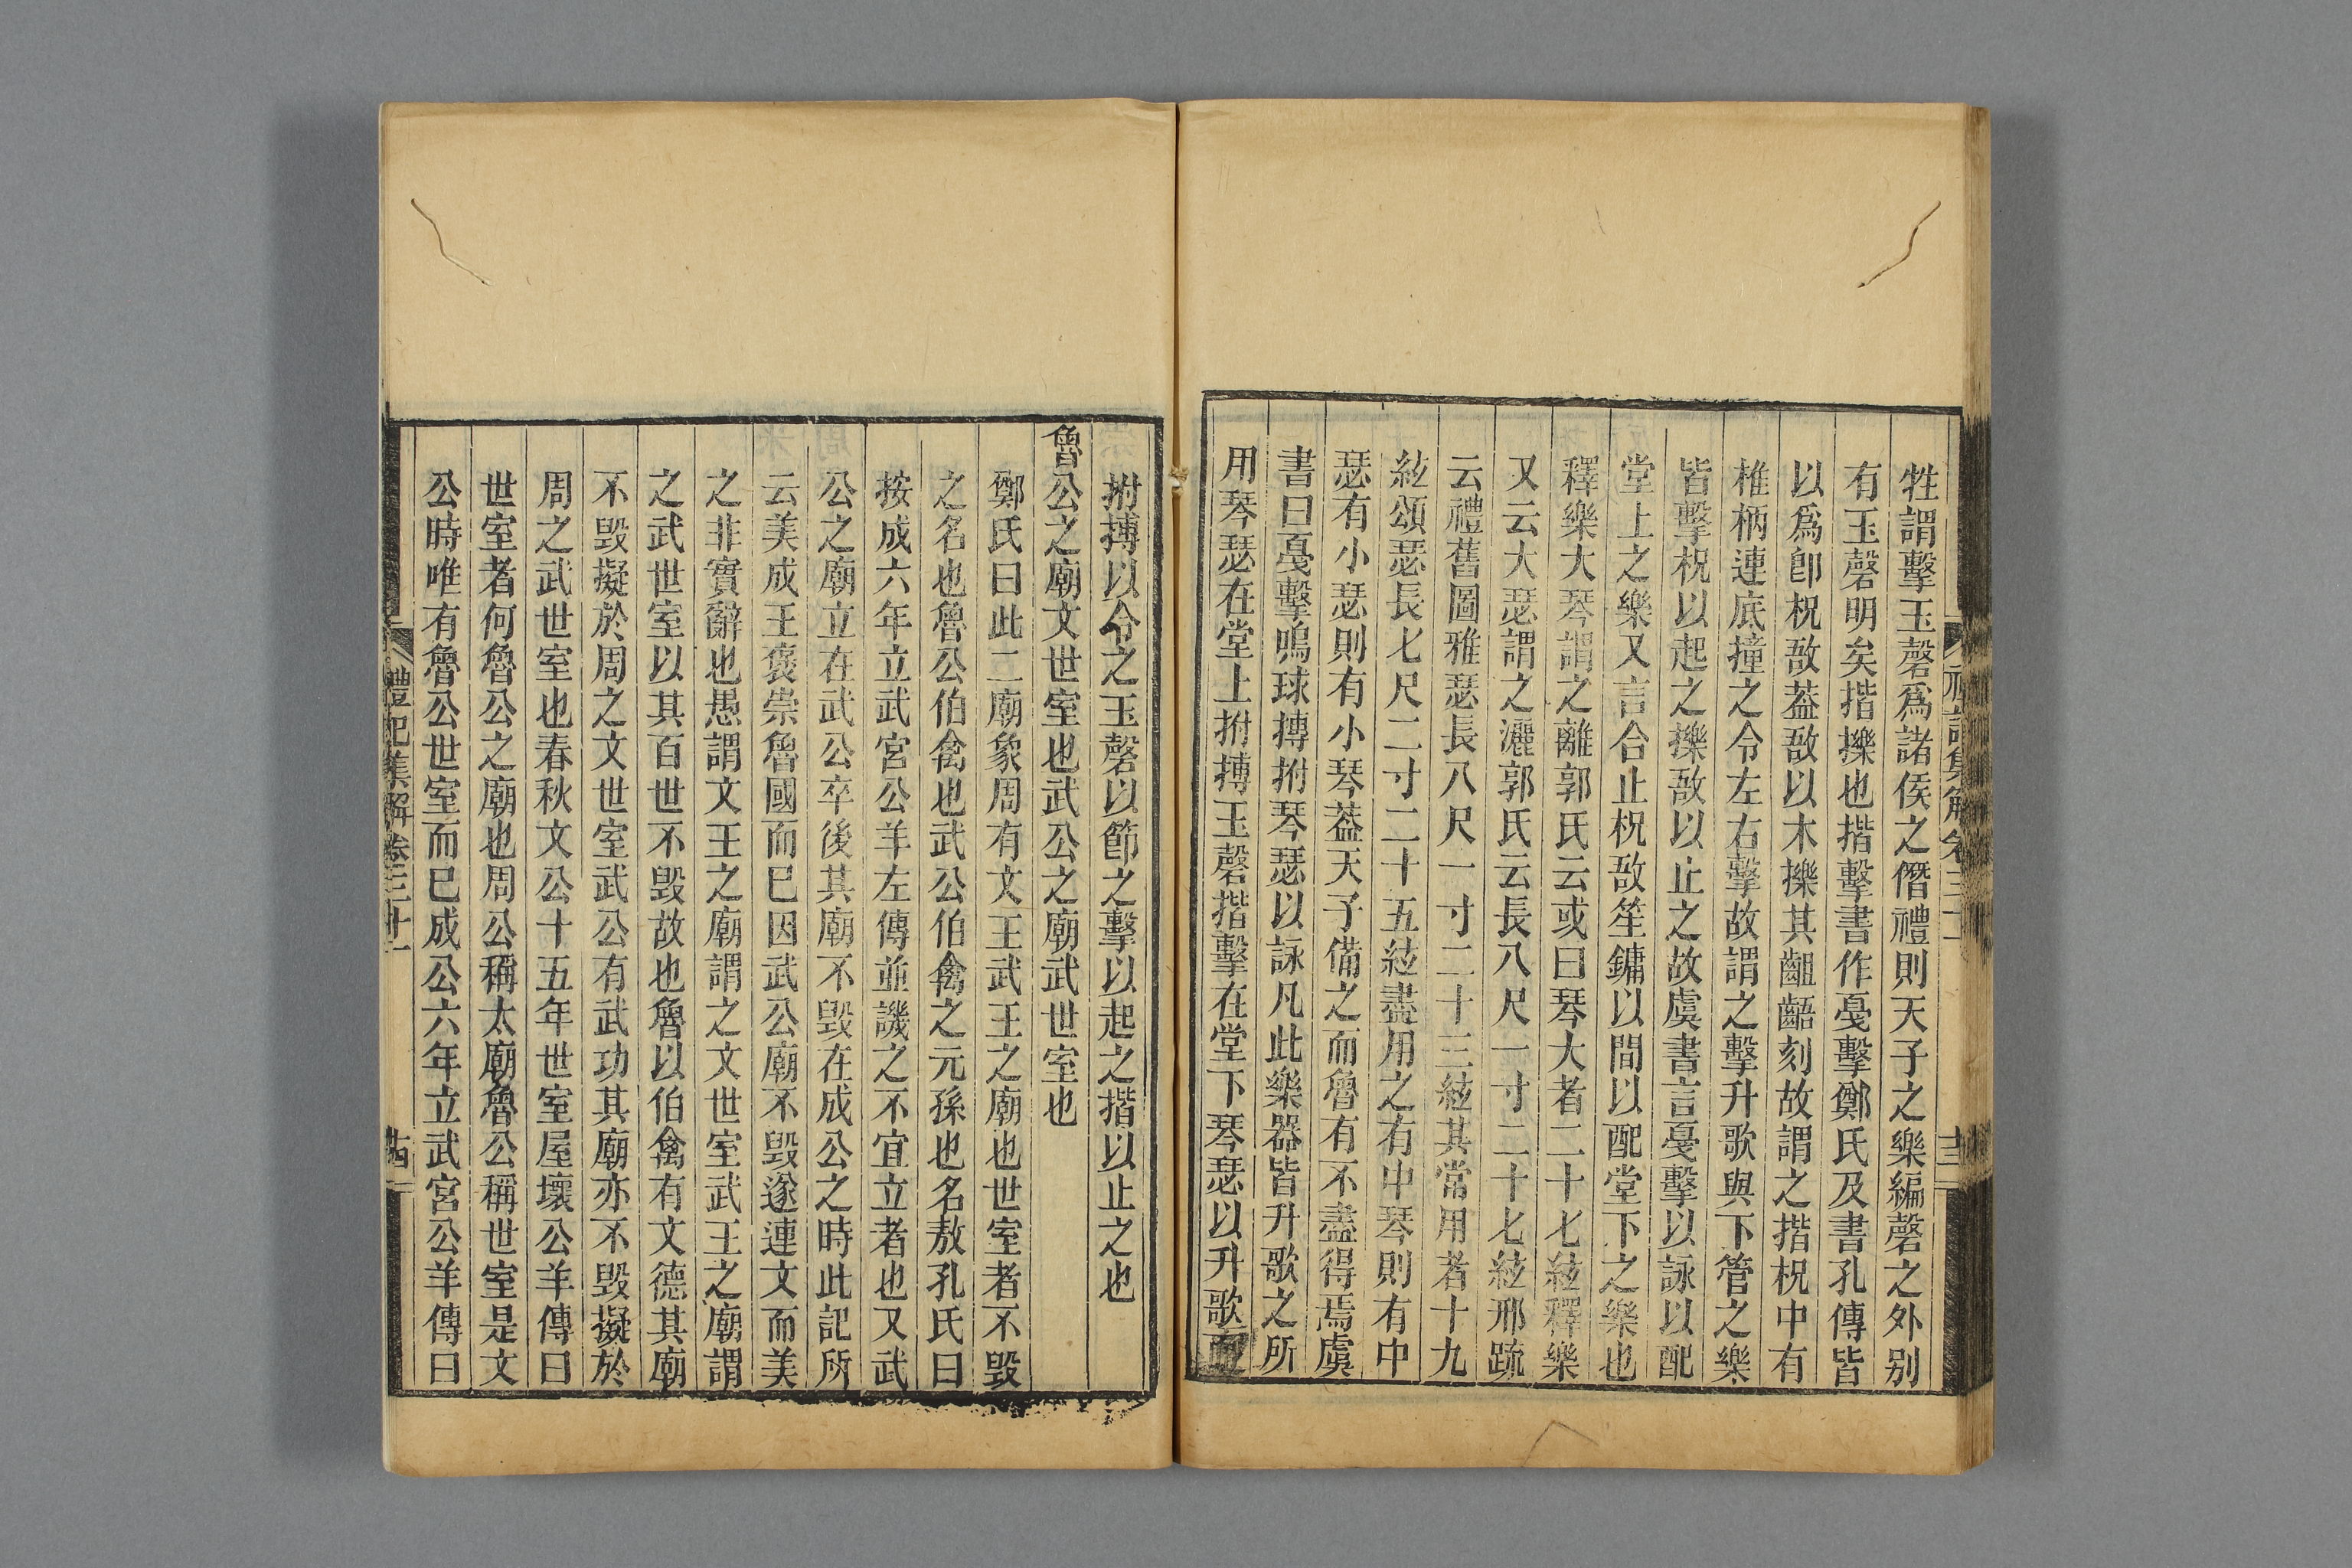 牲謂擊玉磬爲諸侯之僭禮則天子之樂編磬之外别
有玉磬明矣揩擽也揩擊書作戞擊鄭氏及書孔傳皆
以爲卽柷敔葢敔以木擽其齟齬刻故謂之揩柷中有
椎柄連底撞之令左右擊故謂之擊升歌與下管之樂
皆擊柷以起之擽敔以止之故虞書言戞擊以詠以配
堂上之樂又言合止柷敔笙鏞以間以配堂下之樂也
釋樂大琴謂之離郭氏云或曰琴大者二十七絃釋樂
又云大瑟謂之灑郭氏云長八尺一寸二十七絃邢疏
云禮舊圖雅瑟長八尺一寸二十三絃其常用者十九
絃頌瑟長七尺二寸二十五絃盡用之有中琴則有中
瑟有小瑟則有小琴葢天子備之而魯有不盡得焉虞
書曰戞擊鳴球搏拊琴瑟以詠凡此樂器皆升歌之所
用琴瑟在堂上拊搏玉磬揩擊在堂下琴瑟以升歌而
拊搏以令之玉磬以節之擊以起之揩以止之也
魯公之廟文世室也武公之廟武世室也
鄭氏曰此二廟象周有文王武王之廟也世室者不毁
之名也魯公伯禽也武公伯禽之元孫也名敖孔氏曰
按成六年立武宮公羊左傳並譏之不宜立者也又武
公之廟立在武公卒後其廟不毁在成公之時此記所
云美成王褒崇魯國而已因武公廟不毁遂連文而美
之非實辭也愚謂文王之廟謂之文世室武王之廟謂
之武世室以其百世不毁故也魯以伯禽有文德其廟
不毁擬於周之文世室武公有武功其廟亦不毁擬於
周之武世室也春秋文公十五年世室屋壞公羊傳曰
世室者何魯公之廟也周公稱太廟魯公稱世室是文
公時唯有魯公世室而已成公六年立武宮公羊傳曰
禮記集解卷三十一
十四